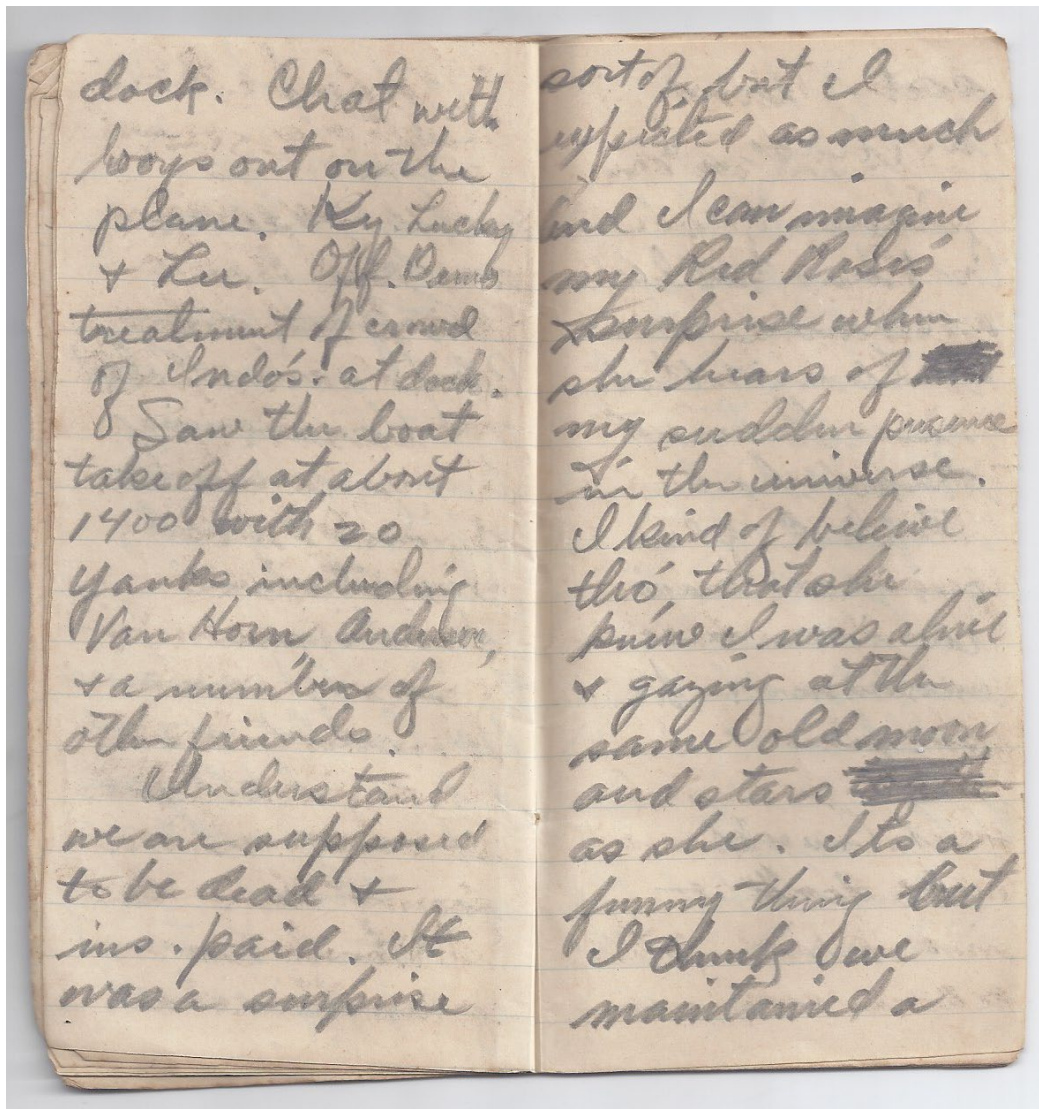 dock. Chat with
boys out on the
plane. Ky. Lucky
& Lee. Off.
treatment of crowd
of Indo's. at dock.
Saw the boat
take off at about
1400 with 20
Yanks including
Van Horn, Anderson,
& a number of
other friends.
Understand
we are supposed
to be dead &
ins. paid. It
was a surprise
sort of but I
expected as much
and I can imagine
my Red Rose's
surprise when
she hears of
my sudden presence
in the universe.
I kind of believe
tho', that she
knew I was alive
& gazing at the
same old moon
and stars
as she. Its a
funny thing but
I think we
maintained a